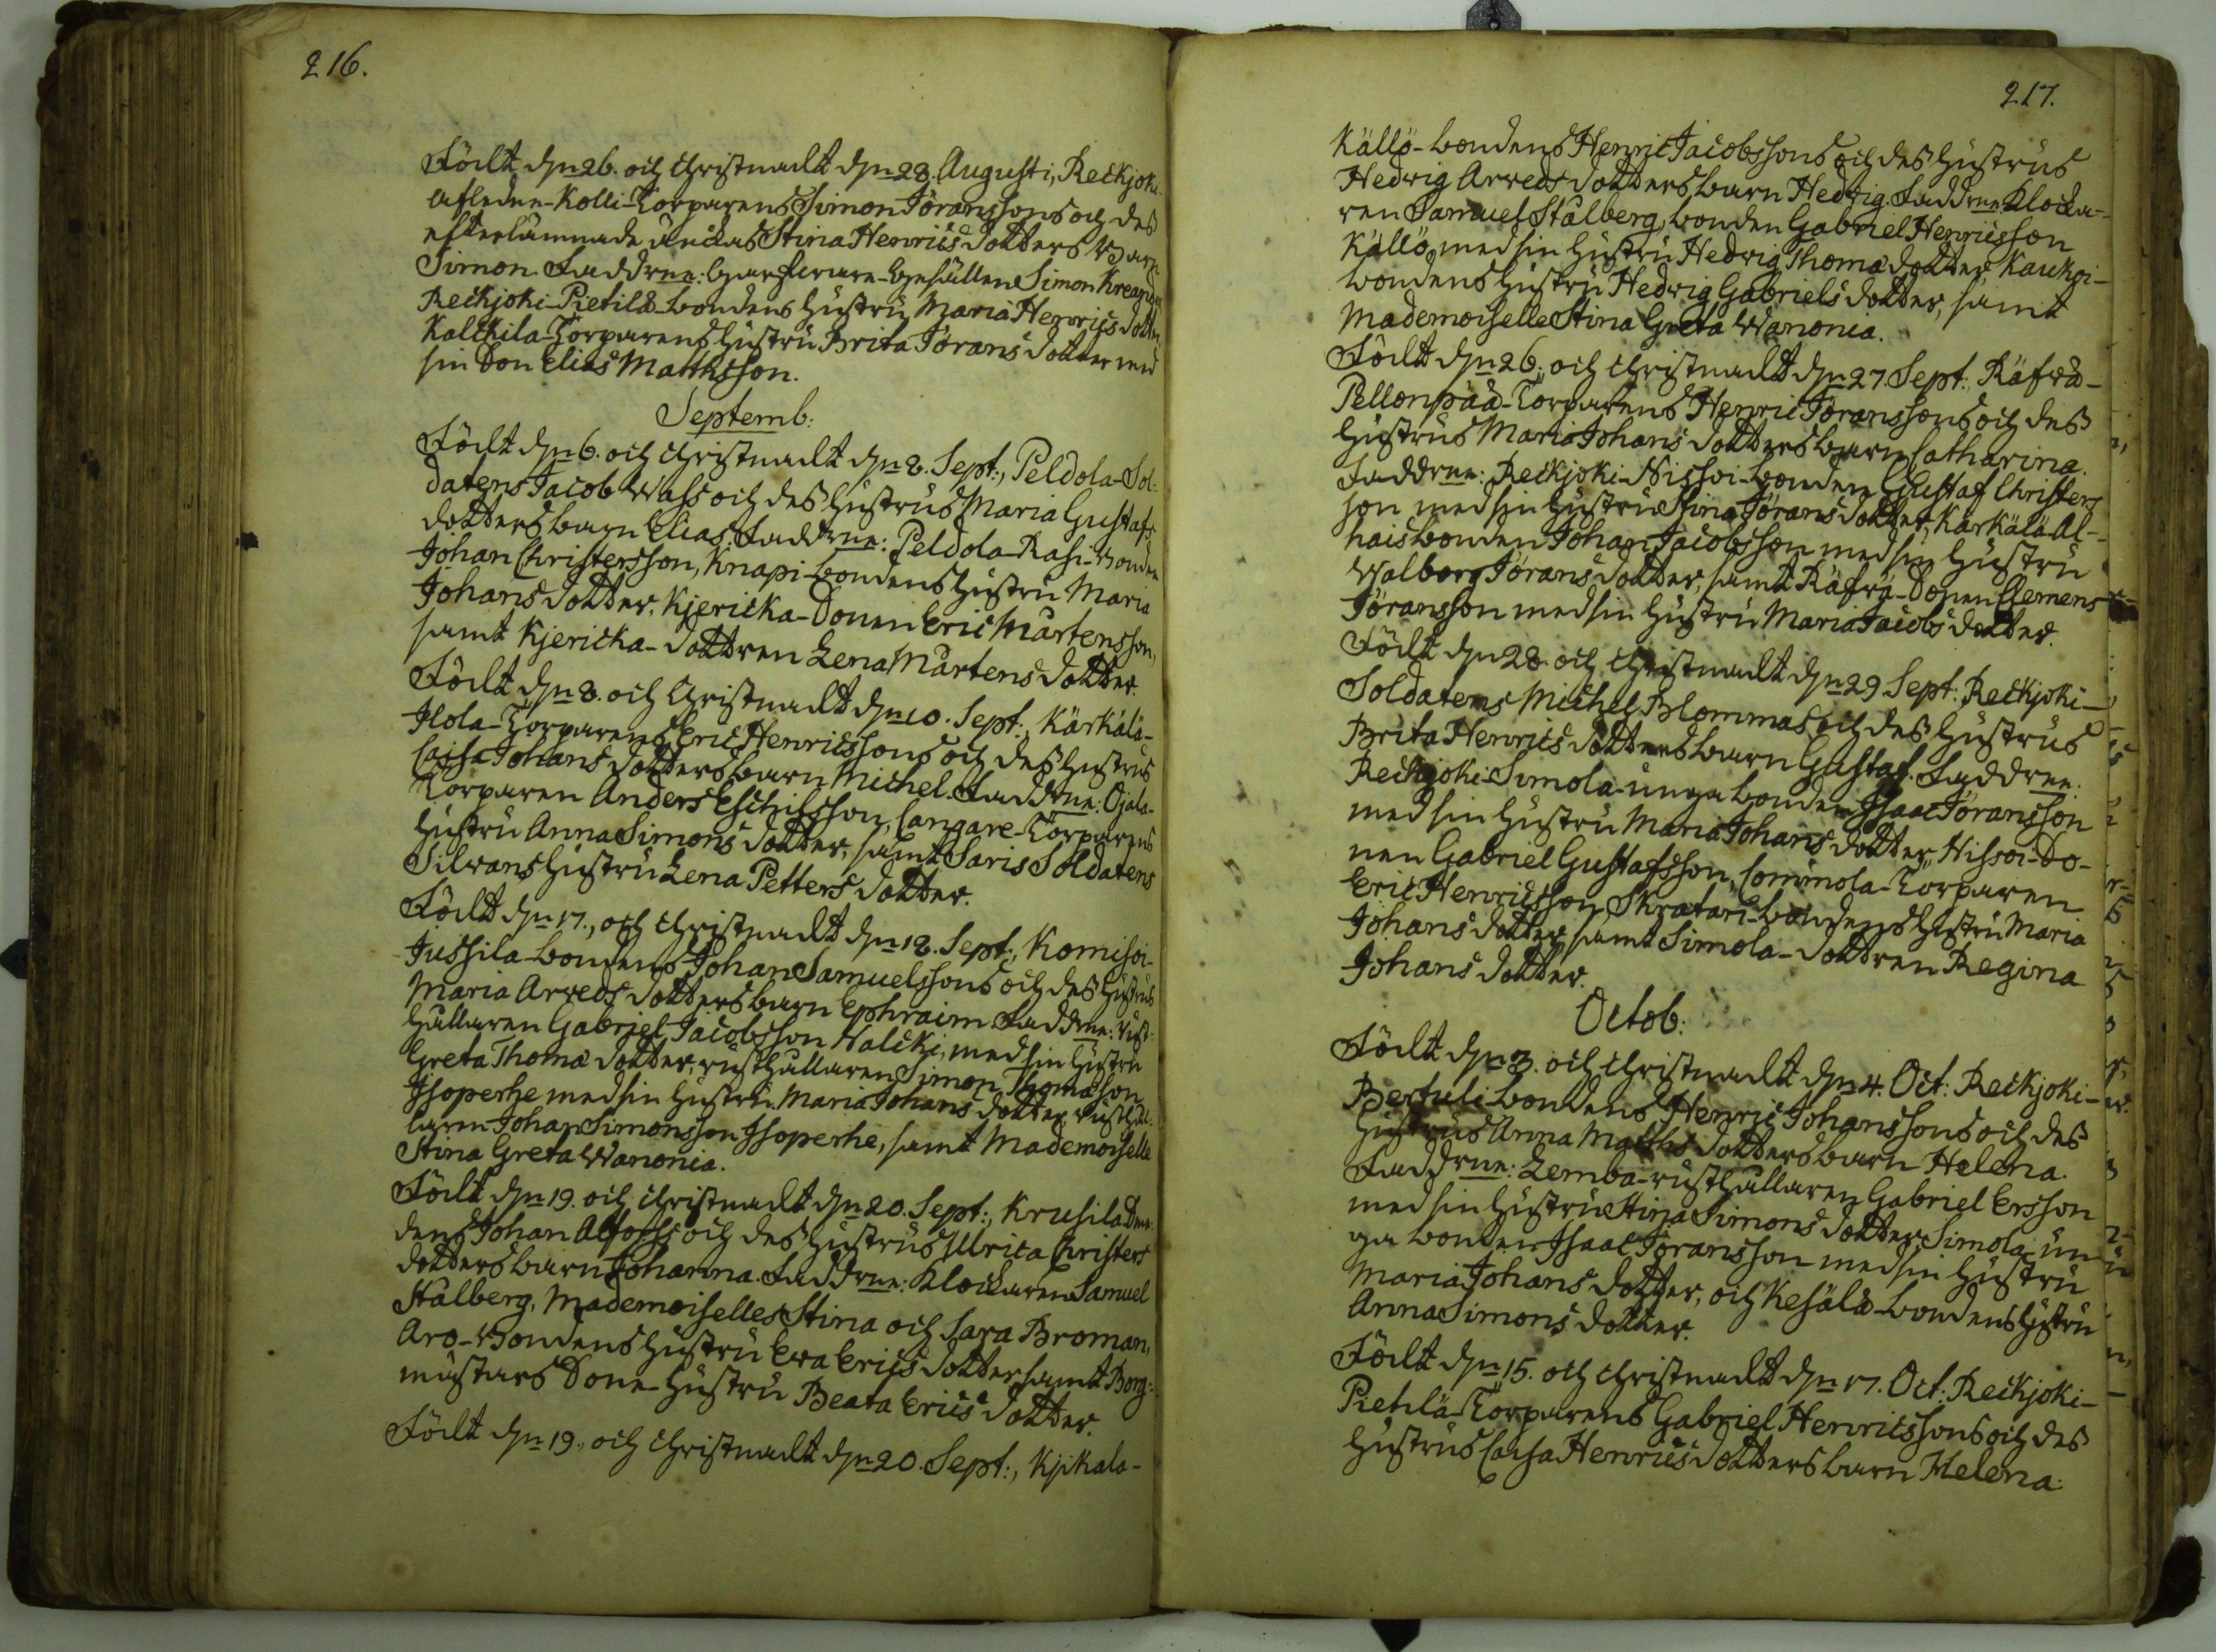 216.
Födt d. 26. och Christnadt d. 28. Augusti, Reckjoki-
Afledne-Kolli-Torparens Simon Göranssons och des
efterlämnade änckas Stina Henrics dotters Barn
Simon. Faddrne: Garfvare-Gesällen Simon
Reckjoki-Pietilä-bondens hustru Maria Henrics dotter,
Kalckila-Torparens hustru Brita Görans dotter med
sin Son Elias Matthsson.
Septemb:
Födt d. 6. och Christnadt d. 8. Sept:, Peldola-Sol-
datens Jacob Wass och des hustrus Maria Gustafs
dotters barn Elias. Faddrne: Peldola-Rasi-bonden
Johan Christersson, Knapi-bondens hustru Maria
Johans dotter, Kjericka-Sonen Eric Mårtensson,
samt Kjericka-dottren Lena Mårtens dotter.
Födt d. 8. och Christnadt d. 10. Sept:, Kärkälä-
Ilola-Torparens Eric Henricssons och des hustrus
Caisa Johans dotters barn Michel. Faddrne: Ojala-
Torparen Anders Eschilsson, Cangare-Torparens
hustru Anna Simons dotter, samt Saris Soldatens
Silwans hustru Lena Petters dotter.
Födt d. 17., och Christnadt d. 18. Sept:, Komisoi-
Jussila-bondens Johan Samuelssons och des hustrus
Maria Arveds dotters barn Ephraim. Faddrne: Rust-
hållaren Gabriel Jacobsson Halcki, med sin hustru
Greta Thomæ dotter, rusthållaren Simon Thomæson
Isoperhe med sin hustru Maria Johans dotter, rusthål-
laren Johan Simonsson Isoperhe, samt Mademoiselle
Stina Greta Wanonia.
Födt d. 19. och Christnadt d. 20. Sept:, Krusila
Johan och des hustrus Ulrica Christers
dotters barn Johanna. Faddrne: Klockaren Samuel
Stålberg, Mademoiselles Stina och Sara Broman,
Aro-bondens hustru Ewa Erics dotter samt Borg-
mästars Sone-hustru Beata Erics dotter.
Födt d. 19., och Christnadt d. 20. Sept:, Kjikala-
217.
Källö-bondens Henric Jacobssons och des hustrus
Hedvig Arveds dotters barn Hedvig. Faddrne: Klocka-
ren Samuel Stålberg, bonden Gabriel Henricsson
Källö, med sin hustru Hedvig Thomæ dotter, Kaukoi-
bondens hustru Hedvig Gabriels dotter, samt
Mademoiselle Stina Greta Wanonia.
Födt d. 26., och Christnadt d. 27. Sept:, Räfvä-
Pellonpää-Torparens Henric Göranssons och des
hustrus Maria Johans dotters barn Catharina.
Faddrne: Reckjoki-Nissoi-bonden Gustaf Christers
son med sin hustru Stina Görans dotter, Kärkälä-Al-
haisbonden Johan Jacobsson med sin hustru
Walborg Görans dotter, samt Räfvä-Sonen Clemens
Göransson med sin hustru Maria Jacobs dotter.
Födt d. 28. och Christnadt d. 29 Sept: Reckjoki-
Soldatens Michel Blommas och des hustrus
Brita Henrics dotters barn Gustaf. Faddrne:
Reckjoki-Simola-unga bonden Isaac Göransson
med sin hustru Maria Johans dotter, Nissoi-So-
nen Gabriel Gustafsson, Commola-Torparen
Eric Henricsson, Skratari-bondens hustru Maria
Johans dotter, samt Simola-dottren Regina
Johans dotter.
Octob:
Födt d. 3. och Christnadt d. 4. Oct: Reckjoki-
Bertuli-bondens Henric Johanssons och des
hustrus Anna Matths dotters barn Helena.
Faddrne: Lemba-rusthållaren Gabriel Ersson
med sin hustru Stina Simons dotter, Simola-un-
ga bonden Isaac Göransson med sin hustru
Maria Johans dotter, och Kesälä-bondens hustru
Anna Simons dotter.
Födt d. 15. och Christnadt d. 17. Oct: Reckjoki-
Pietilä-Torparens Gabriel Henricssons och des
hustrus Caisa Henrics dotters barn Helena.